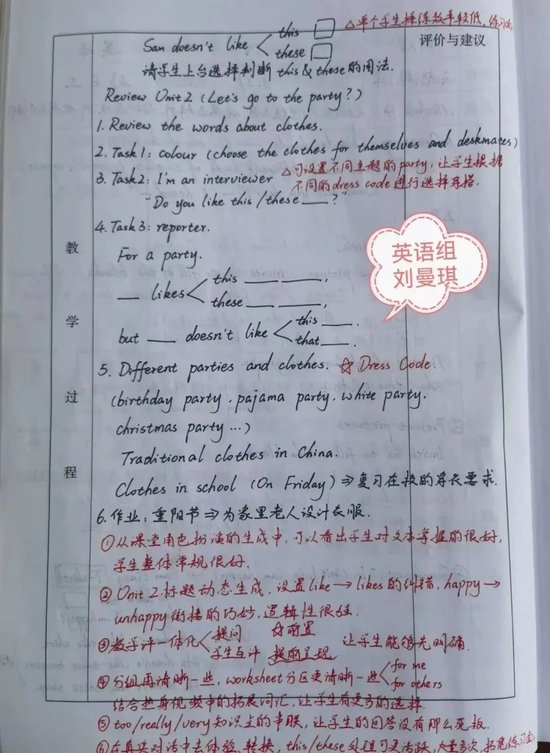 this □ △单个学生操练效率较低,练习
Sam doesn't like
these □
评价与建议
请学生上台选择判断 this & these的用法.
Review Unit 2 (Let's go to the party?)
1. Review the words about clothes.
2. Task 1: colour (choose the clothes for themselves and deskmates)
3. Task 2: I'm an interviewer △可设置不同主题的party,让学生根据
不同的dress code进行选择穿搭.
"Do you like this/these ___?"
4. Task 3: reporter.
For a party.
this ___ ___,
__ likes
these ___ ___,
but ___ doesn't like
this ___.
that ___.
英语组
刘曼琪
教学过程
5. Different parties and clothes. ☆ Dress Code.
(birthday party. pajama party. white party.
christmas party ...)
Traditional clothes in China.
Clothes in school (On Friday) ⇒ 复习在校的穿衣要求.
6. 作业: 重阳节 ⇒ 为家里老人设计衣服.
①从课堂角色扮演的生成中,可以看出学生对文本掌握的很好,
学生整体常规很好.
②Unit 2标题动态生成,设置like → likes的纠错, happy →
unhappy衔接的巧妙,逻辑性很强.
③教学评一体化
提问 ☆前置
学生互评 提前呈现
让学生能够先明确.
④分组再清晰一些, worksheet 分区更清晰一些
for me
for others
结合热身视频中的拓展词汇,让学生有更多的选择.
⑤too/really/very知识上的串联,让学生的回答没有那么死板.
⑥在真实对话中去体验、转换, this/these处理可